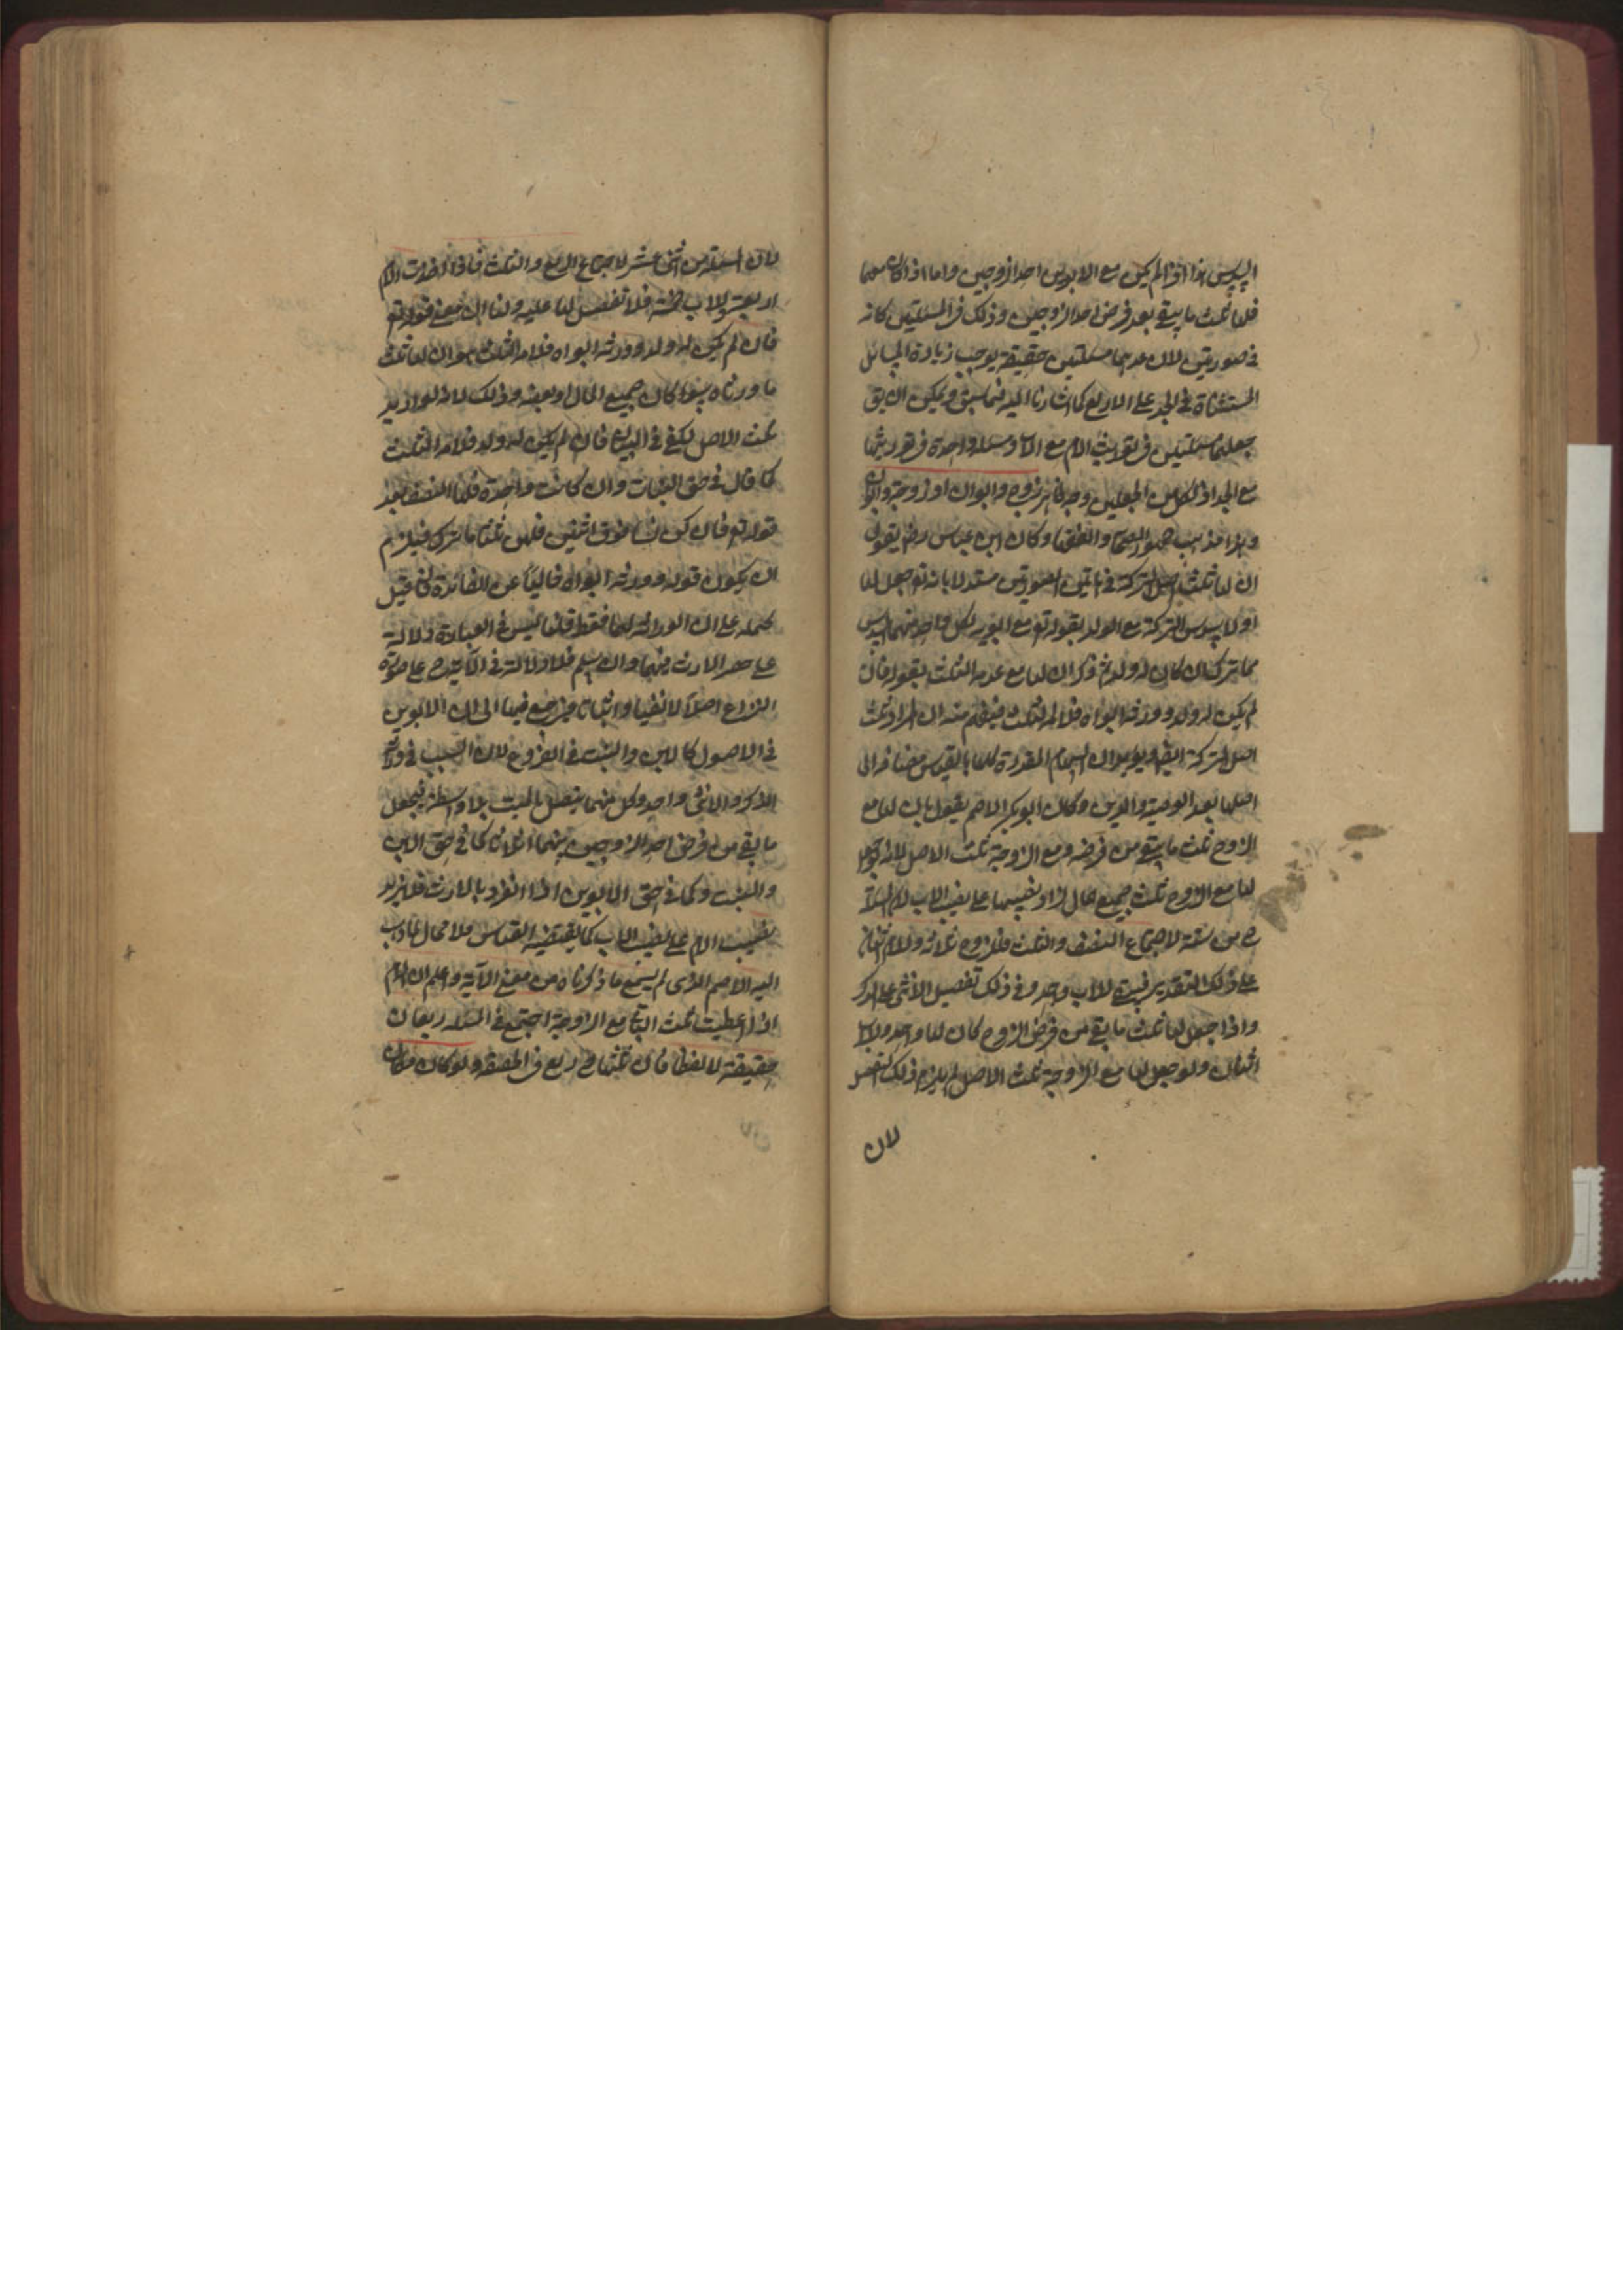 السدس هذا اذا لم يكن مع الابوين احد الزوجين واما اذا كان معهما
فلها ثلث ما يبقى بعد فرض احد الزوجين وذلك في المسئلتين كانه
في صورتين لان عدهما مسئلتين حقيقة يوجب زيادة المسائل
المستثناة في الجد على الاربع كما اشارنا اليه فيما سبق ويمكن ان يق
جعلهما مسئلتين في توريث الام مع الاب ومسئلة واحدة في توريثها
مع الجد اذ لكل من الجعلين وجه زوج وابوان او زوجة وابوان
وهذا مذهب جمهور الصحابة والفقهاء وكان ابن عباس رض يقول
ان لها ثلث اصل التركة في الصورتين مستدلا بانه تع جعل لها
اولا سدس التركة مع الولد بقوله تع ولابويه لكل واحد منهما السدس
مما ترك ان كان له ولد ثم ذكر ان لها مع عدمه الثلث بقوله فان
لم يكن له ولد وورثه ابواه فلامه الثلث فيفهم منه ان المراد ثلث
اصل التركة ايضا ويؤيده ان السهام المقدرة كلها بالقياس مضافة الى
اصلها بعد الوصية والدين وكان ابو بكر الاصم يقول بان لها مع
الزوج ثلث ما يبقى من فرضه ومع الزوجة ثلث الاصل لانه لو جعل
لها مع الزوج ثلث جميع المال لزاد نصيبها على نصيب الاب لان المسئلة
ح من ستة لاجتماع النصف والثلث فللزوج ثلاثة وللام اثنان
على ذلك التقدير فيبقى للاب واحد وفي ذلك تفضيل الانثى على الذكر
واذا جعل لها ثلث ما بقي من فرض الزوج كان لها واحد وللاب
اثنان ولو جعل لها مع الزوجة ثلث الاصل لم يلزم ذلك التفضيل
لان
لان المسئلة من اثنى عشر لاجتماع الربع والثلث فاذا اخذت الام
اربعة وللاب خمسة فلا تفضيل لها عليه ولنا ان معنى قوله تع
فان لم يكن له ولد وورثه ابواه فلامه الثلث هو ان لها ثلث
ما ورثاه سواء كان جميع المال او بعضه وذلك لانه لو اريد
ثلث الاصل لكفى في البيان فان لم يكن له ولد فلامه الثلث
كما قال في حق البنات وان كانت واحدة فلها النصف بعد
قوله تع فان كن نساء فوق اثنتين فلهن ثلثا ما ترك فيلزم
ان يكون قوله وورثه ابواه خاليا عن الفائدة فان قيل
نحمله على ان الوراثة لهما فقط قلنا ليس في العبارة دلالة
على حصر الارث فيهما وان سلم فلا دلالة في الآية ح على صورة
النزاع اصلا لا نفيا ولا اثباتا فيرجع فيها الى ان الابوين
في الاصول كالابن والبنت في الفروع لان السبب في وراثة
الذكر والانثى واحد وكل منهما يتصل بالميت بلا واسطة فيجعل
ما بقي من فرض احد الزوجين بينهما اثلاثا كما في حق الابن
والبنت وكما في حق الابوين اذا انفردا بالارث فلا يزيد
نصيب الام على نصيب الاب كما يقتضيه القياس فلا مجال لما ذهب
اليه الاصم الذي لم يسمع ما ذكرناه من معنى الآية واعلم ان الام
اذا اعطيت ثلث الباقي مع الزوجة اجتمع في المسئلة ربعان
حقيقة لا لفظا فان ثلثها ح ربع في الحقيقة ولو كان مكان